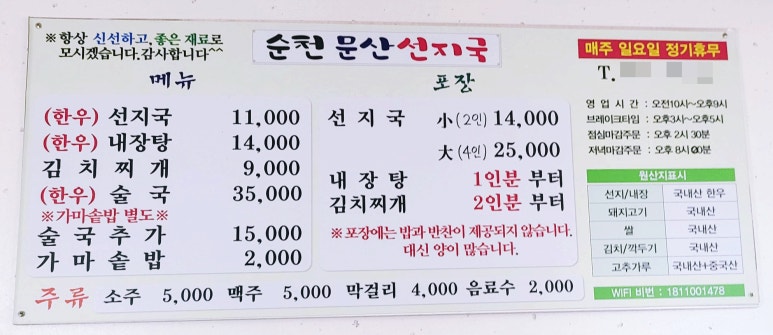 ※항상 신선하고, 좋은 재료로
모시겠습니다. 감사합니다^^
순천 문산 선지국
매주 일요일 정기휴무
T.
메뉴
(한우) 선지국 11,000
(한우) 내장탕 14,000
김치찌개 9,000
(한우) 술국 35,000
※가마솥밥 별도※
술국추가 15,000
가마솥밥 2,000
포장
선지국 小(2인) 14,000
大(4인) 25,000
내장탕 1인분 부터
김치찌개 2인분 부터
※포장에는 밥과 반찬이 제공되지 않습니다.
대신 양이 많습니다.
영업시간 : 오전10시~오후9시
브레이크타임 : 오후3시~오후5시
점심마감주문 : 오후 2시 30분
저녁마감주문 : 오후 8시 00분
원산지표시
선지/내장 국내산 한우
돼지고기 국내산
쌀 국내산
김치/깍두기 국내산
고추가루 국내산+중국산
WIFI 비번 : 1811001478
주류 소주 5,000 맥주 5,000 막걸리 4,000 음료수 2,000